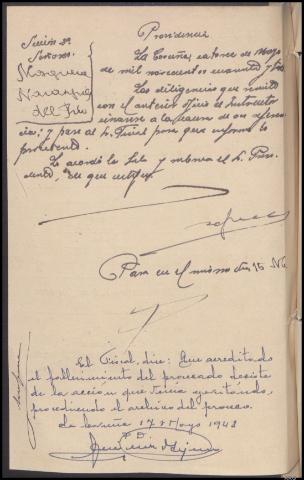 Sección 2ª
Señores
Mosquera
Naranjo
del Río
Providencia
La Coruña, catorce de Mayo
de mil novecientos cuarenta y
Las diligencias que remite
con el anterior oficio el Instructor
únanse a la causa de su referen
cia; y pase al Sr. Fiscal para que informe lo
procedente.
Lo acordó la Sala y rubrica el Sr. Presi
dente, de que certifico.
Pasa en el mismo día
El Fiscal, dice: Que acreditado
el fallecimiento del procesado desiste
de la acción que venía ejercitando,
procediendo el archivo del proceso.
La Coruña 17 Mayo 1943